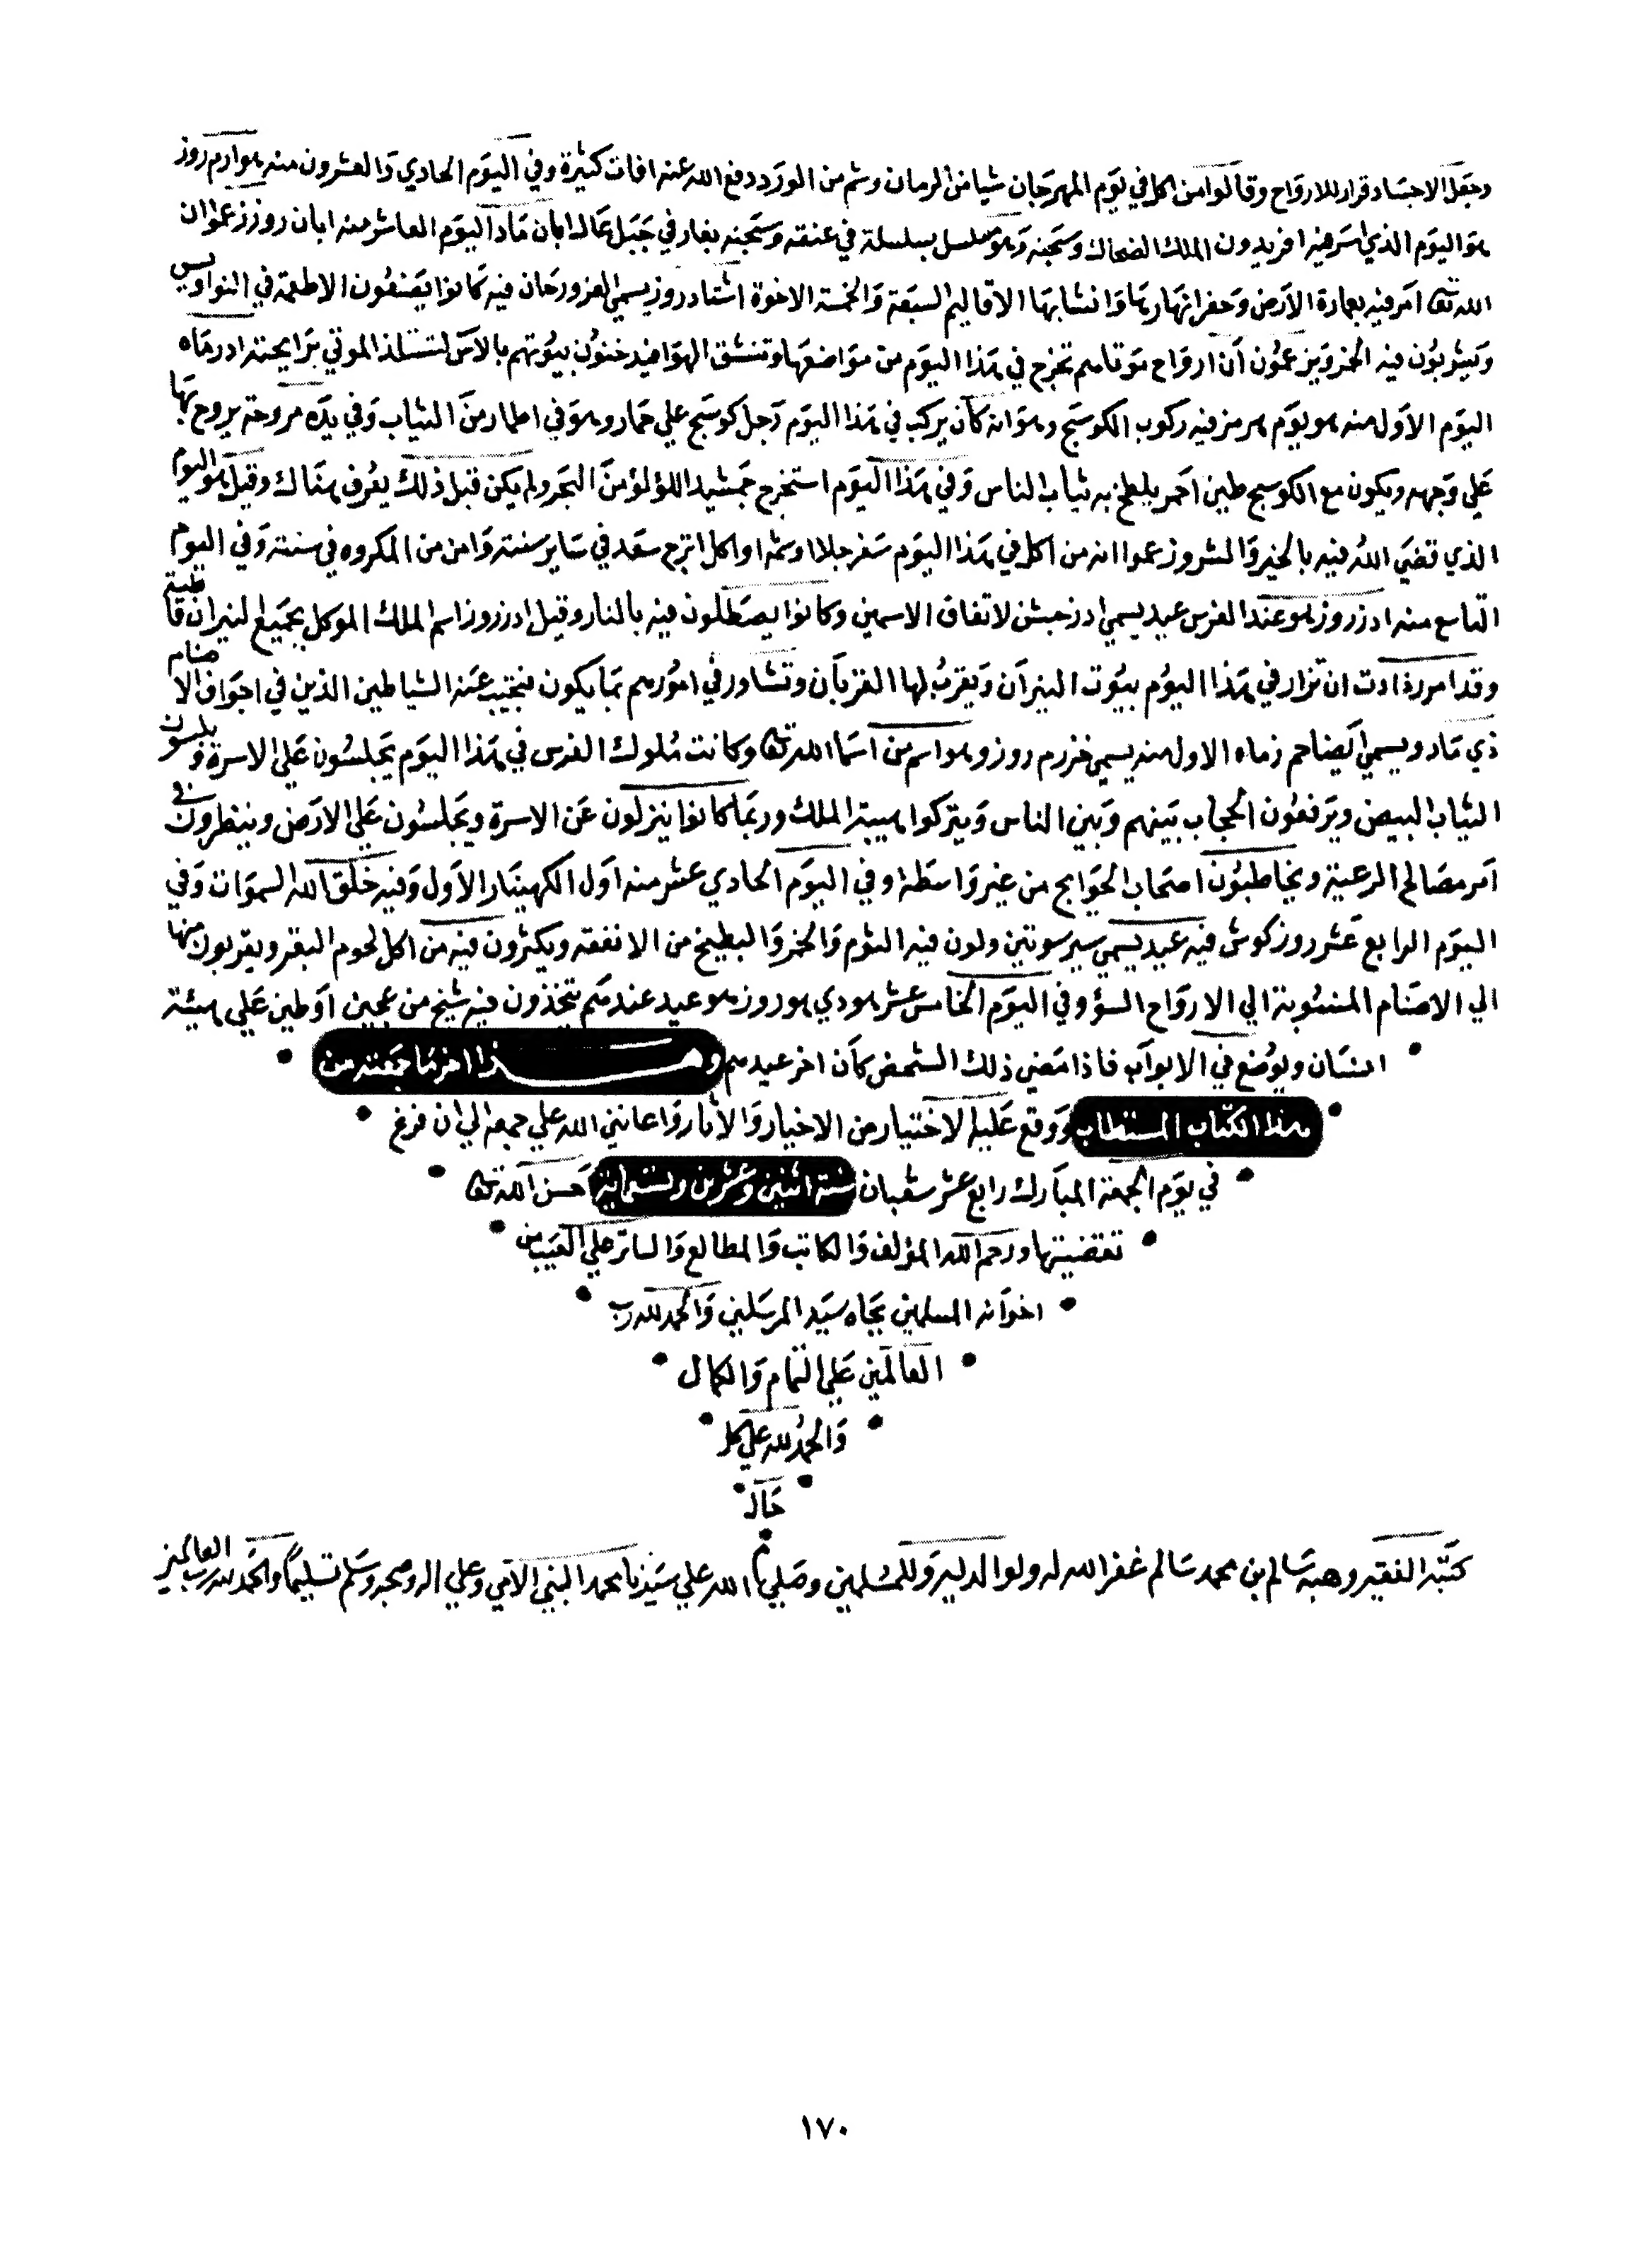 وجعل الاجساد قرار للارواح وقالوا من اكل في يوم المهرجان شيا من الرمان وشم من الورد دفع الله عنه افات كثيرة وفي اليوم الحادي والعشرون منه هو ارم روز
هو اليوم الذي اسر فيه افريدون الملك الضحاك وسجنه وهو مسلسل بسلسلة في عنقه وسجنه بغار في جبل عال ابان ماد اليوم العاشر منه ابان روز زعموا ان
الله تعالى امر فيه بعمارة الارض وحفر انهارها وانشا بها الاقاليم السبعة والخمسة الاخوة اشتاد روز يسمي العزورجان فيه كانوا يضعون الاطعمة في النواويس
ويشربون فيه الخمر ويزعمون ان ارواح موتاهم تخرج في هذا اليوم من مواضعها وتنشق الهوا فيدخنون بيوتهم بالاس لتستلذ الموتي برايحته ادرماه
اليوم الاول منه هو يوم هرمز فيه ركوب الكوسج وهو انه كان يركب في هذا اليوم رجل كوسج علي حمار وهو في اطمار من الثياب وفي يده مروحة يروح بها
علي وجهه ويكون مع الكوسج طين احمر يلطخ به ثياب الناس وفي هذا اليوم استخرج جمشيد اللؤلؤ من البحر ولم يكن قبل ذلك يعرف هناك وقيل هو اليوم
الذي قضي الله فيه بالخير والشر وزعموا انه من اكل في هذا اليوم سفرجلا او شمه او اكل اترج سعد في ساير سنته وامن من المكروه في سنته وفي اليوم
التاسع منه ادرروز هو عند الفرس عيد يسمي ادرجشن لاتفاق الاسمين وكانوا يصطلون فيه بالنار وقيل ادرروز اسم الملك الموكل بجميع النيران قاطبة
وقد امر زرادت ان تزار في هذا اليوم بيوت النيران ويقرب لها القربان وتشاور في امورهم بما يكون فيجتيب عنه الشياطين الذين في اجواف الاصنام
ذي ماد ويسمي ايضا حم زماه الاول منه يسمي خزرم روز وهو اسم من اسما الله تعالى وكانت ملوك الفرس في هذا اليوم يجلسون علي الاسرة ويلبسون
الثياب البيض ويرفعون الحجاب بينهم وبين الناس ويتركوا هيبة الملك وربما كانوا ينزلون عن الاسرة ويجلسون علي الارض وينظرون في
امر مصالح الرعية ويخاطبون اصحاب الحوايج من غير واسطة وفي اليوم الحادي عشر منه اول الكهنبار الاول وفيه خلق الله السموات وفي
اليوم الرابع عشر روز كوش فيه عيد يسمي سير سوتين ولون فيه الثوم والخمر والبطيخ من الانفقه ويكثرون فيه من اكل لحوم البقر ويقربون منها
الي الاصنام المنسوبة الي الارواح السؤ وفي اليوم الخامس عشر هو دي هوروز هو عيد عندهم يتخذون فيه شيخ من عجين او طين علي هيئة
انسان ويوضع في الابواب فاذا مضي ذلك الشخص كان اخر عيدهم وهذا اخر ما جمعته من
هذا الكتاب المستطاب ووقع عليه الاختيار من الاخبار والاثار واعانني الله علي جمعه الي ان فرغ
في يوم الجمعة المباركة رابع عشر شعبان سنة اثنين وعشرين وتسعماية احسن الله تعالى
تقضيتها ورحم الله المؤلف والكاتب والمطالع والساتر علي العيب من
اخوانه المسلمين بجاه سيد المرسلين والحمد لله رب
العالمين علي التمام والكمال
والحمد لله علي كل
حال
كتبه الفقير وهبه سالم بن محمد سالم غفر الله له ولوالديه وللمسلمين وصلي الله علي سيدنا محمد النبي الامي وعلي اله وصحبه وسلم تسليما والحمد لله رب العالمين
١٧٠